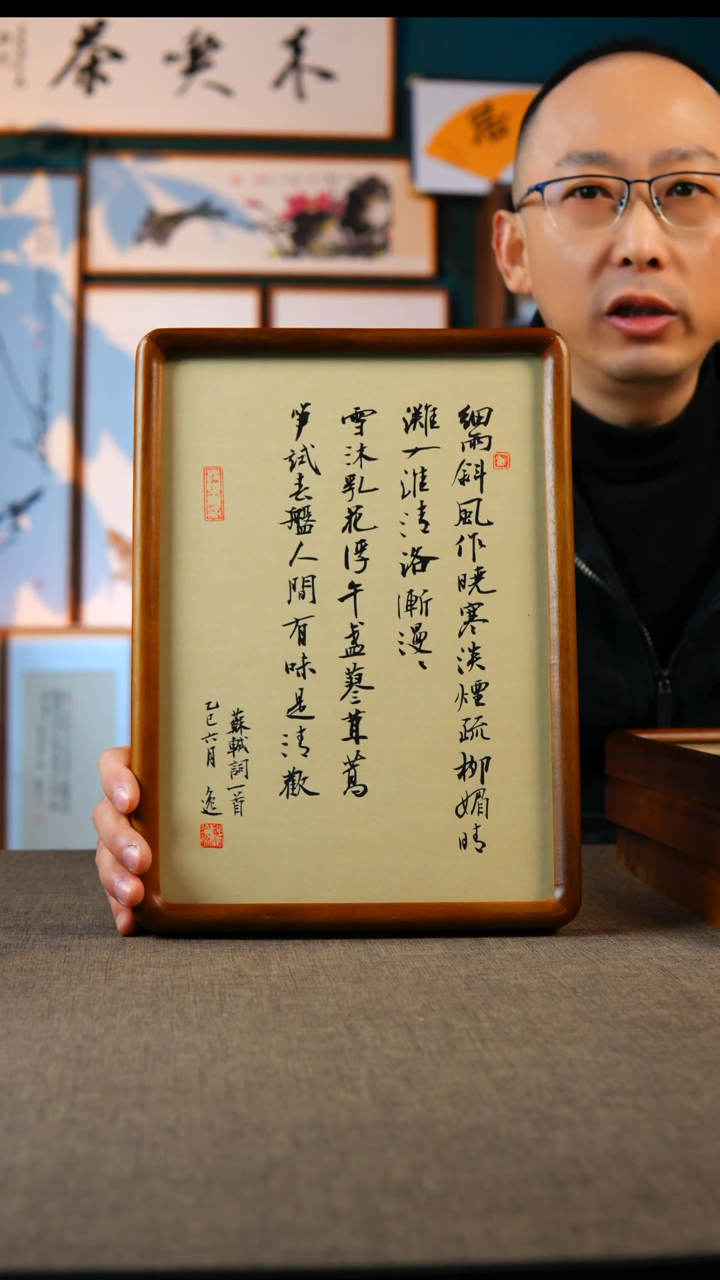 喫茶
細雨斜風作曉寒淡煙疏柳媚晴
灘入淮清洛漸漫〻
雪沫乳花浮午盞蓼茸蒿
笋試春盤人間有味是清歡
蘇軾詞一首
乙巳六月 逸